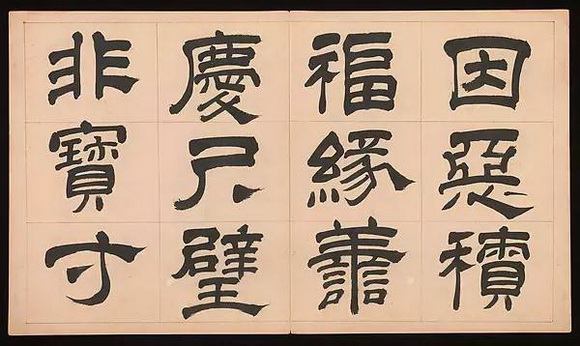 因惡積
福緣譱
慶尺璧
非寶寸